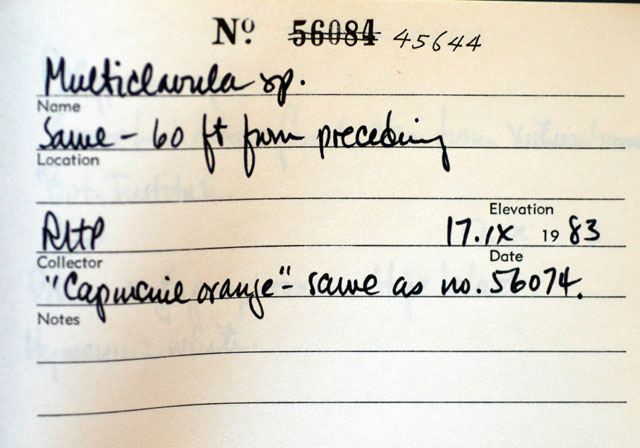 Nº 56084 45644
Multiclavula sp.
Name
Same - 60 ft from preceding
Location
Elevation
RHP 17.ix 1983
Collector Date
"Capucine orange" - same as no. 56074.
Notes